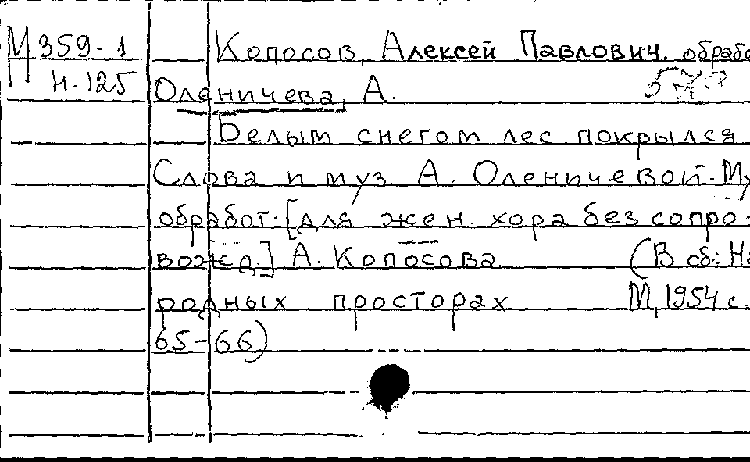 М 359-1 Копосов, Алексей Павлович. обрабо
н-125 Оленичева, А.
Белым снегом лес покрылся
Слова и муз А. Оленичевой. Му
обработ. [для жен. хора без сопро-
вожд.] А. Копосова (В сб: На
родных просторах М, 1954 с.
65-66)